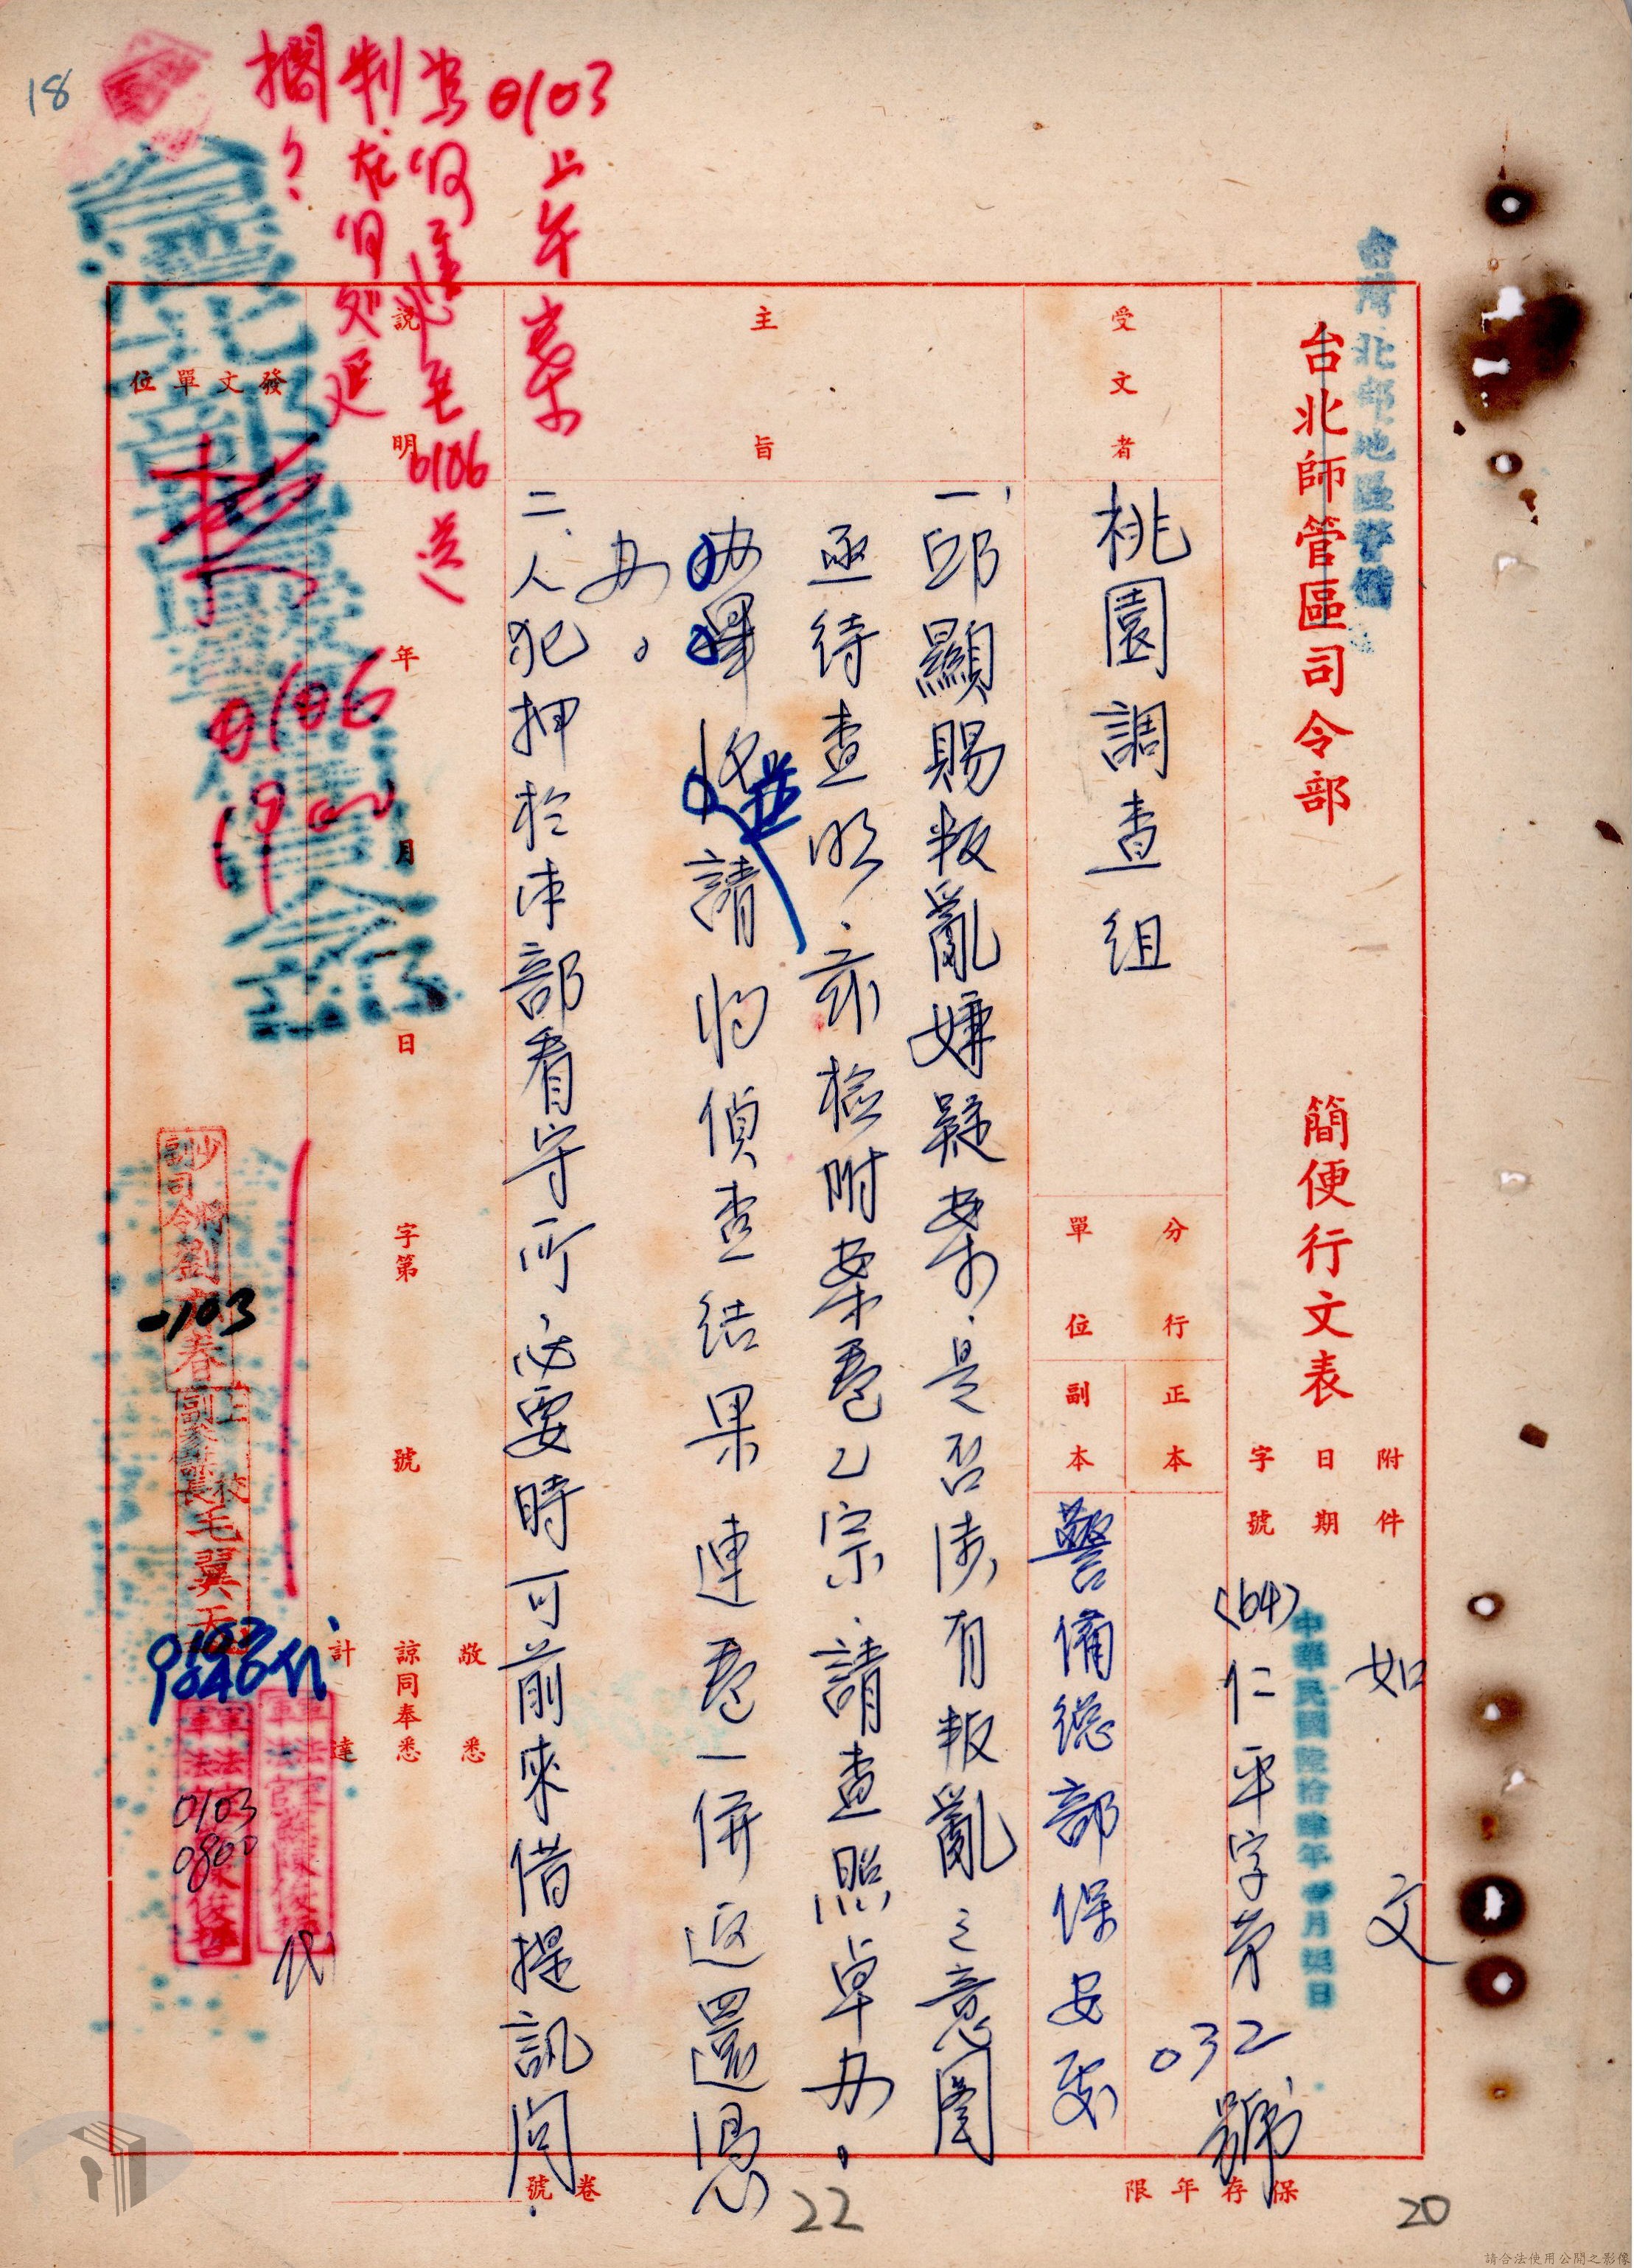 台灣北部地區警備
台北師管區司令部 簡便行文表
附件 如文
日期 中華民國陸拾肆年壹月
字號 (64)仁平字第032號
受文者 桃園調查組
分行單位
正本
副本 警備總部保安處
主旨
一、邱顯賜叛亂嫌疑案,是否涉有叛亂之意圖
亟待查明,茲檢附案卷乙宗,請查照卓办。
請將偵查結果連卷一併返還憑
办。
二、人犯押於本部看守所,必要時可前來借提訊問.
說明
年月日字第號
敬悉
諒同奉悉
計達
發文單位
0103上午案
為何遲至0106送
判,在何处延
擱?
0106
1900
少將副司令劉
春
0103
上校副參謀長毛翼天
0103
代
0103
0800
代
卷號
保存年限
18
22
20
請合法使用公開之影像